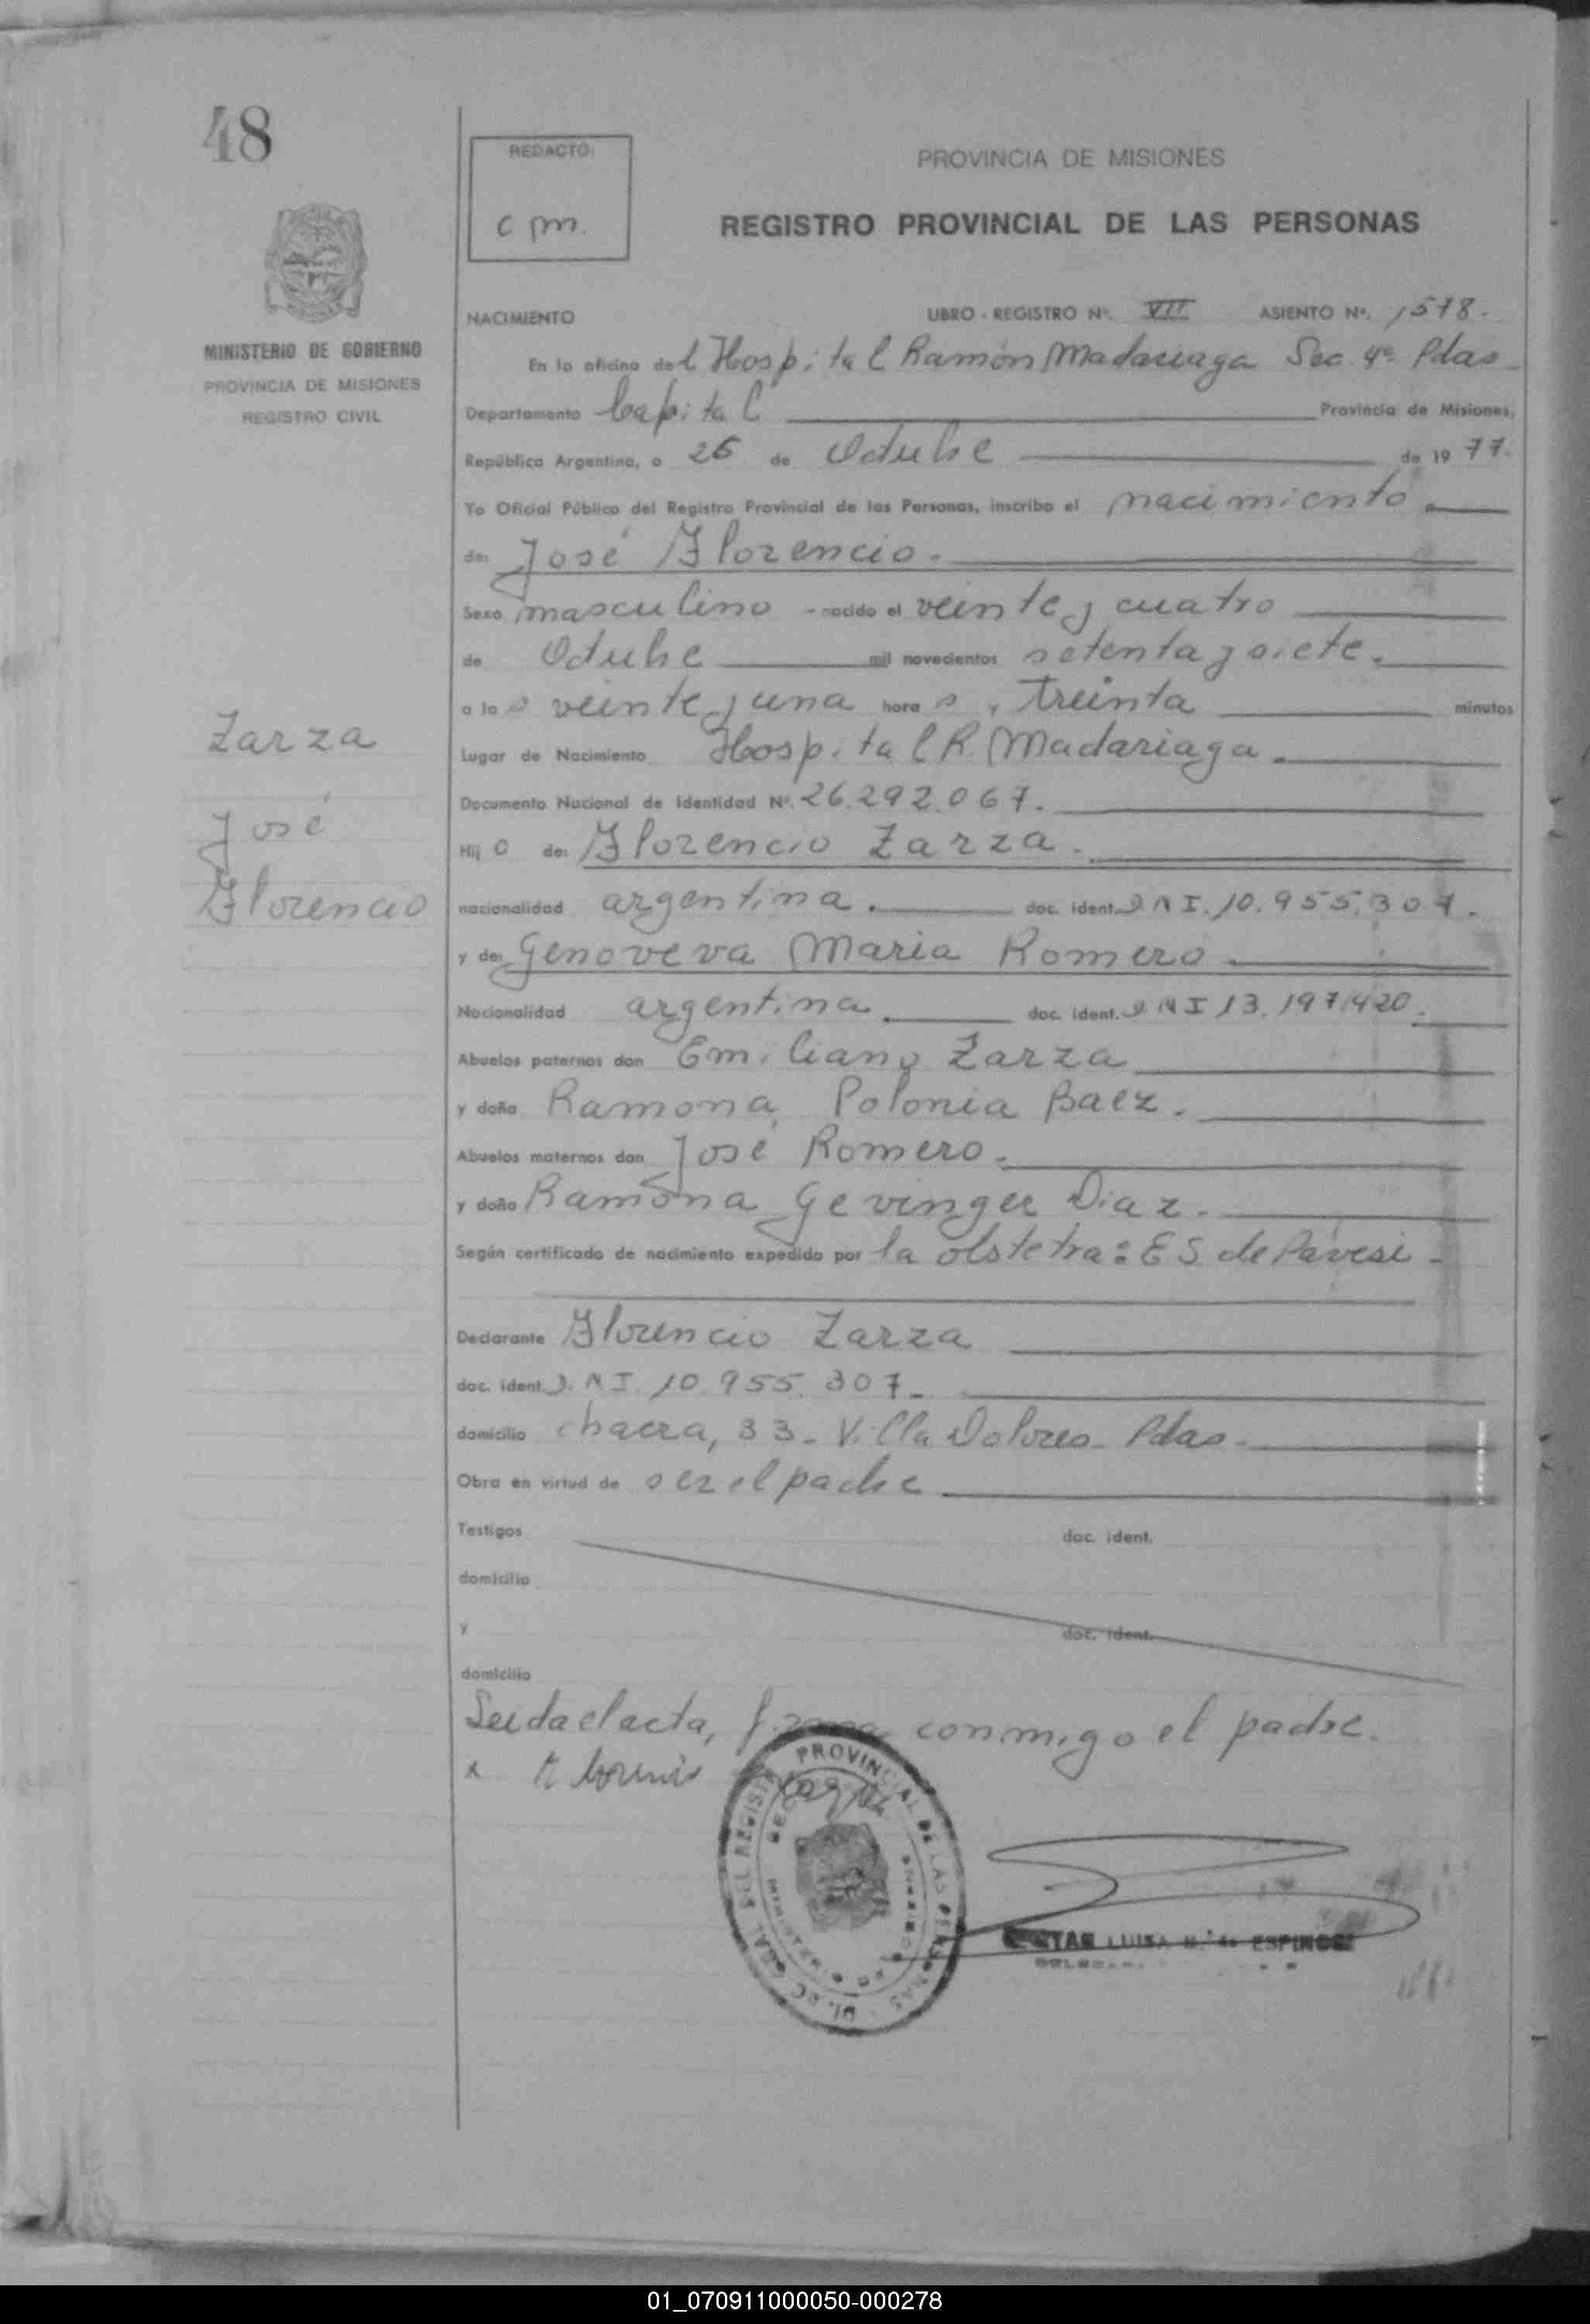 48
REDACTO:
c m.
PROVINCIA DE MISIONES
REGISTRO PROVINCIAL DE LAS PERSONAS
MINISTERIO DE GOBIERNO
PROVINCIA DE MISIONES
REGISTRO CIVIL
NACIMIENTO LIBRO - REGISTRO Nº. VII ASIENTO Nº. 1578.
En la oficina del Hospital Ramón Madariaga Sec. 4ª Pdas
Departamento Capital Provincia de Misiones,
República Argentina, a 26 de Octubre de 1977.
Yo Oficial Público del Registro Provincial de las Personas, inscribo el nacimiento
de: José Florencio.
Sexo masculino - nacido el veinte y cuatro
de Octubre mil novecientos setenta y siete.
a las veinte y una horas y treinta minutos
Lugar de Nacimiento Hospital R. Madariaga.
Documento Nacional de Identidad Nº. 26.292.067.
Hijo de: Florencio Zarza.
nacionalidad argentina. doc. ident. D N I. 10.955.307.
y de: Genoveva Maria Romero
Nacionalidad argentina. doc. ident. D N I 13.197.420.
Abuelos paternos don Emiliano Zarza
y doña Ramona Polonia Baez.
Abuelos maternos don José Romero.
y doña Ramona Gevinger Diaz.
Según certificado de nacimiento expedido por la obstetra: E S de Pavesi
Declarante Florencio Zarza
doc. ident. D. N I. 10.955.307.
domicilio chacra, 33 - Villa Dolores - Pdas.
Obra en virtud de ser el padre
Testigos doc. ident.
domicilio
y doc. ident.
domicilio
Leida el acta, firma conmigo el padre.
x
Zarza
José
Florencio
PROVINCIAL DE LAS PERSONAS
LUISA M. de ESPINOSA
01_070911000050-000278